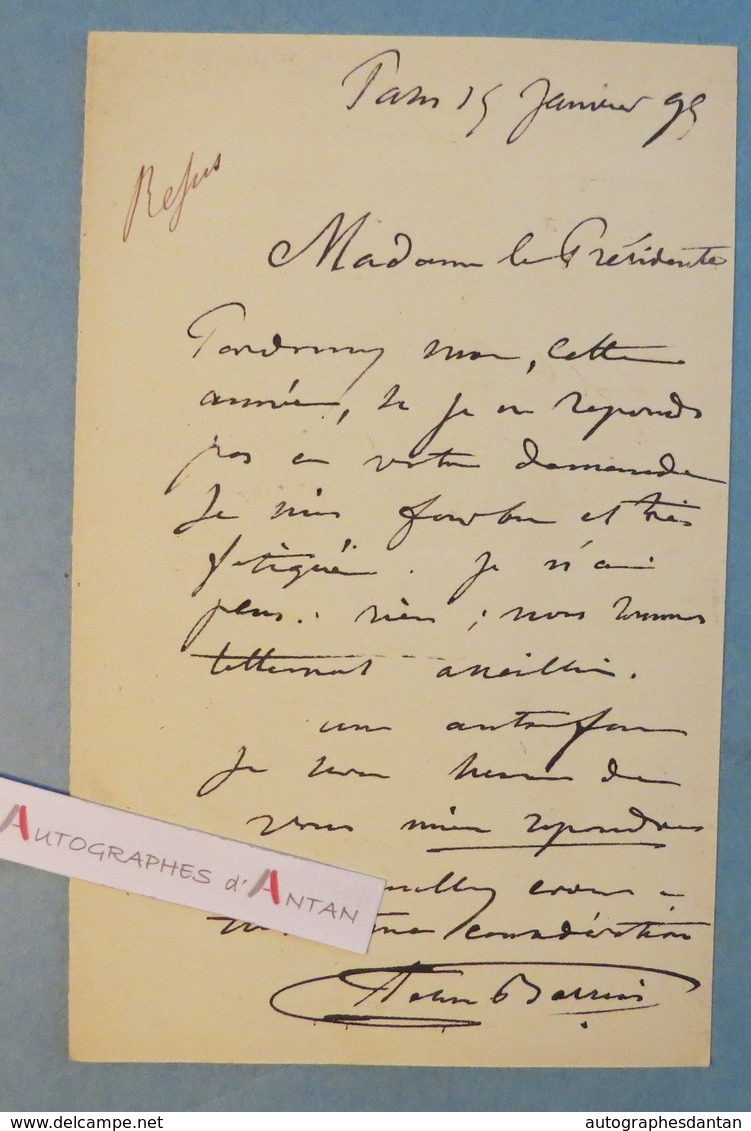 Paris 15 Janvier 95
Refus
Madame la Présidente
Pardonnez moi, cette
année, si je ne reponds
pas a votre demande
Je suis fourbu et très
fatigué. Je n'ai
plus rien ; nous sommes
tellement
une autre fois
Je serai heureux de
vous mieux repondre
AUTOGRAPHES d'ANTAN
croire a
considération
www.delcampe.net
autographesdantan